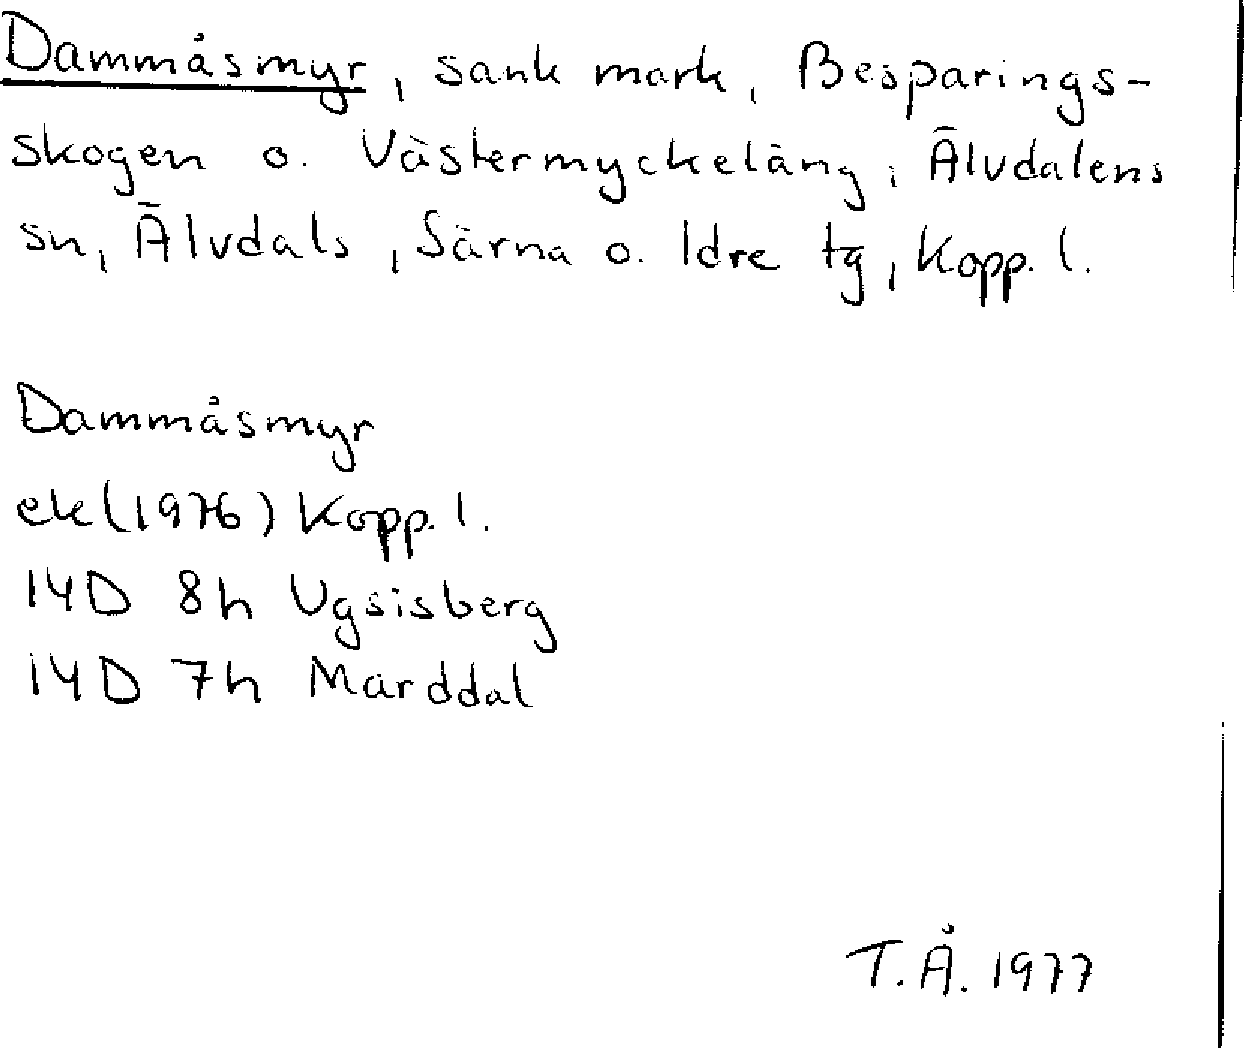 Dammåsmyr, sank mark, Besparings-
skogen o. Västermyckeläng, Älvdalens
sn, Älvdals, Särna o. Idre tg, Kopp. l.
Dammåsmyr
ek (1976) Kopp. l.
14D 8h Ugsisberg
14D 7h Marddal
T.Å. 1977